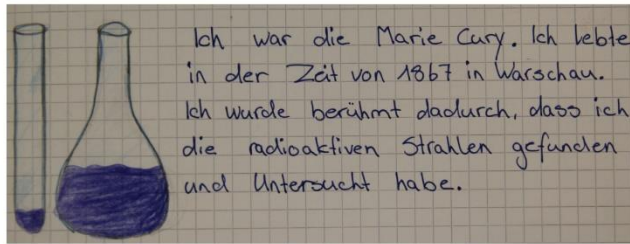 Ich war die Marie Cury. Ich lebte
in der Zeit von 1867 in Warschau.
Ich wurde berühmt dadurch, dass ich
die radioaktiven Strahlen gefunden
und Untersucht habe.